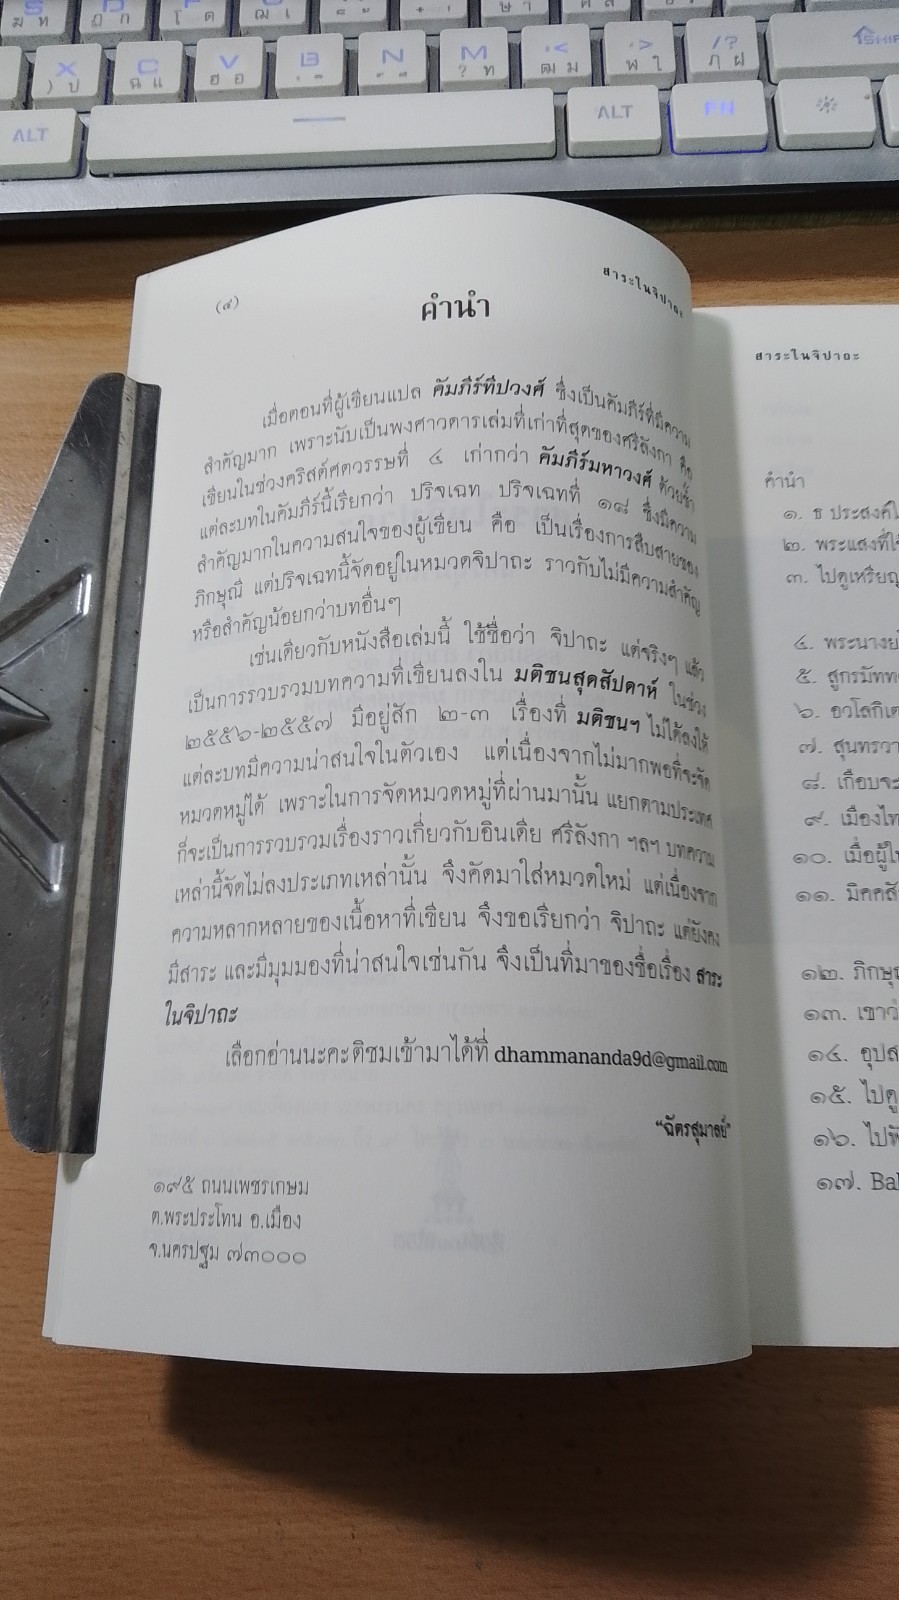 (๔)
สาระในจิปาถะ
คำนำ
เมื่อตอนที่ผู้เขียนแปล คัมภีร์ทีปวงศ์ ซึ่งเป็นคัมภีร์ที่มีความ
สำคัญมาก เพราะนับเป็นพงศาวดารเล่มที่เก่าที่สุดของศรีลังกา คือ
เขียนในช่วงคริสต์ศตวรรษที่ ๔ เก่ากว่า คัมภีร์มหาวงศ์ ด้วยซ้ำ
แต่ละบทในคัมภีร์นี้เรียกว่า ปริจเฉท ปริจเฉทที่ ๑๘ ซึ่งมีความ
สำคัญมากในความสนใจของผู้เขียน คือ เป็นเรื่องการสืบสายของ
ภิกษุณี แต่ปริจเฉทนี้จัดอยู่ในหมวดจิปาถะ ราวกับไม่มีความสำคัญ
หรือสำคัญน้อยกว่าบทอื่นๆ
เช่นเดียวกับหนังสือเล่มนี้ ใช้ชื่อว่า จิปาถะ แต่จริงๆ แล้ว
เป็นการรวบรวมบทความที่เขียนลงใน มติชนสุดสัปดาห์ ในช่วง
๒๕๕๖-๒๕๕๗ มีอยู่สัก ๒-๓ เรื่องที่ มติชนฯ ไม่ได้ลงให้
แต่ละบทมีความน่าสนใจในตัวเอง แต่เนื่องจากไม่มากพอที่จะจัด
หมวดหมู่ได้ เพราะในการจัดหมวดหมู่ที่ผ่านมานั้น แยกตามประเทศ
ก็จะเป็นการรวบรวมเรื่องราวเกี่ยวกับอินเดีย ศรีลังกา ฯลฯ บทความ
เหล่านี้จัดไม่ลงประเภทเหล่านั้น จึงคัดมาใส่หมวดใหม่ แต่เนื่องจาก
ความหลากหลายของเนื้อหาที่เขียน จึงขอเรียกว่า จิปาถะ แต่ยังคง
มีสาระ และมีมุมมองที่น่าสนใจเช่นกัน จึงเป็นที่มาของชื่อเรื่อง สาระ
ในจิปาถะ
เลือกอ่านนะคะติชมเข้ามาได้ที่ dhammananda9d@gmail.com
"ฉัตรสุมาลย์"
๑๙๕ ถนนเพชรเกษม
ต.พระประโทน อ.เมือง
จ.นครปฐม ๗๓๐๐๐
สาระในจิปาถะ
คำนำ
๑. ธ ประสงค์
๒. พระแสงที่
๓. ไปดูเหรียญ
๔. พระนาง
๕. สูกรมัทท
๖. อวโลกิเต
๗. สุนทรวา
๘. เกือบจะ
๙. เมืองไท
๑๐. เมื่อผู้
๑๑. มิคคสั
๑๒. ภิกษุณ
๑๓. เขาว
๑๔. อุปส
๑๕. ไปดู
๑๖. ไปฟั
๑๗. Bal
ALT
ALT
FN
X
C
V
B
N
M